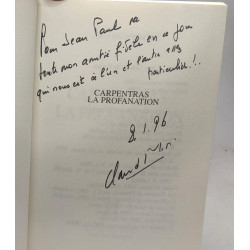 Pour Jean Paul
toute mon amitié fidèle en ce jour
qui nous est à l'un et l'autre si
particulier !..
CARPENTRAS
LA PROFANATION
8.1.96